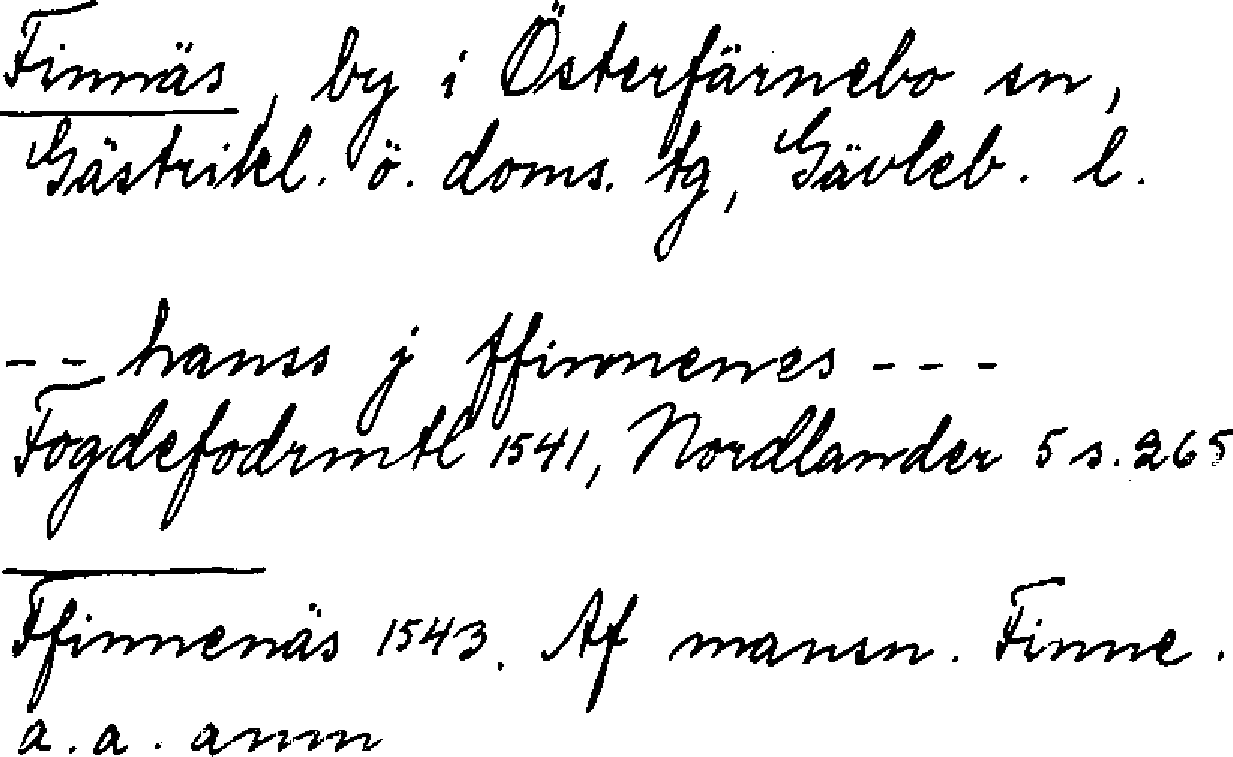 Finnäs, by i Österfärnebo sn,
Gästrikl. ö. doms. tg, Gävleb. l.
-- hanss j ffinnenes ---
Fogdefodrmtl 1541, Nordlander 5 s. 265
Ffinnenäs 1543. Af mansn. Finne.
a. a. anm